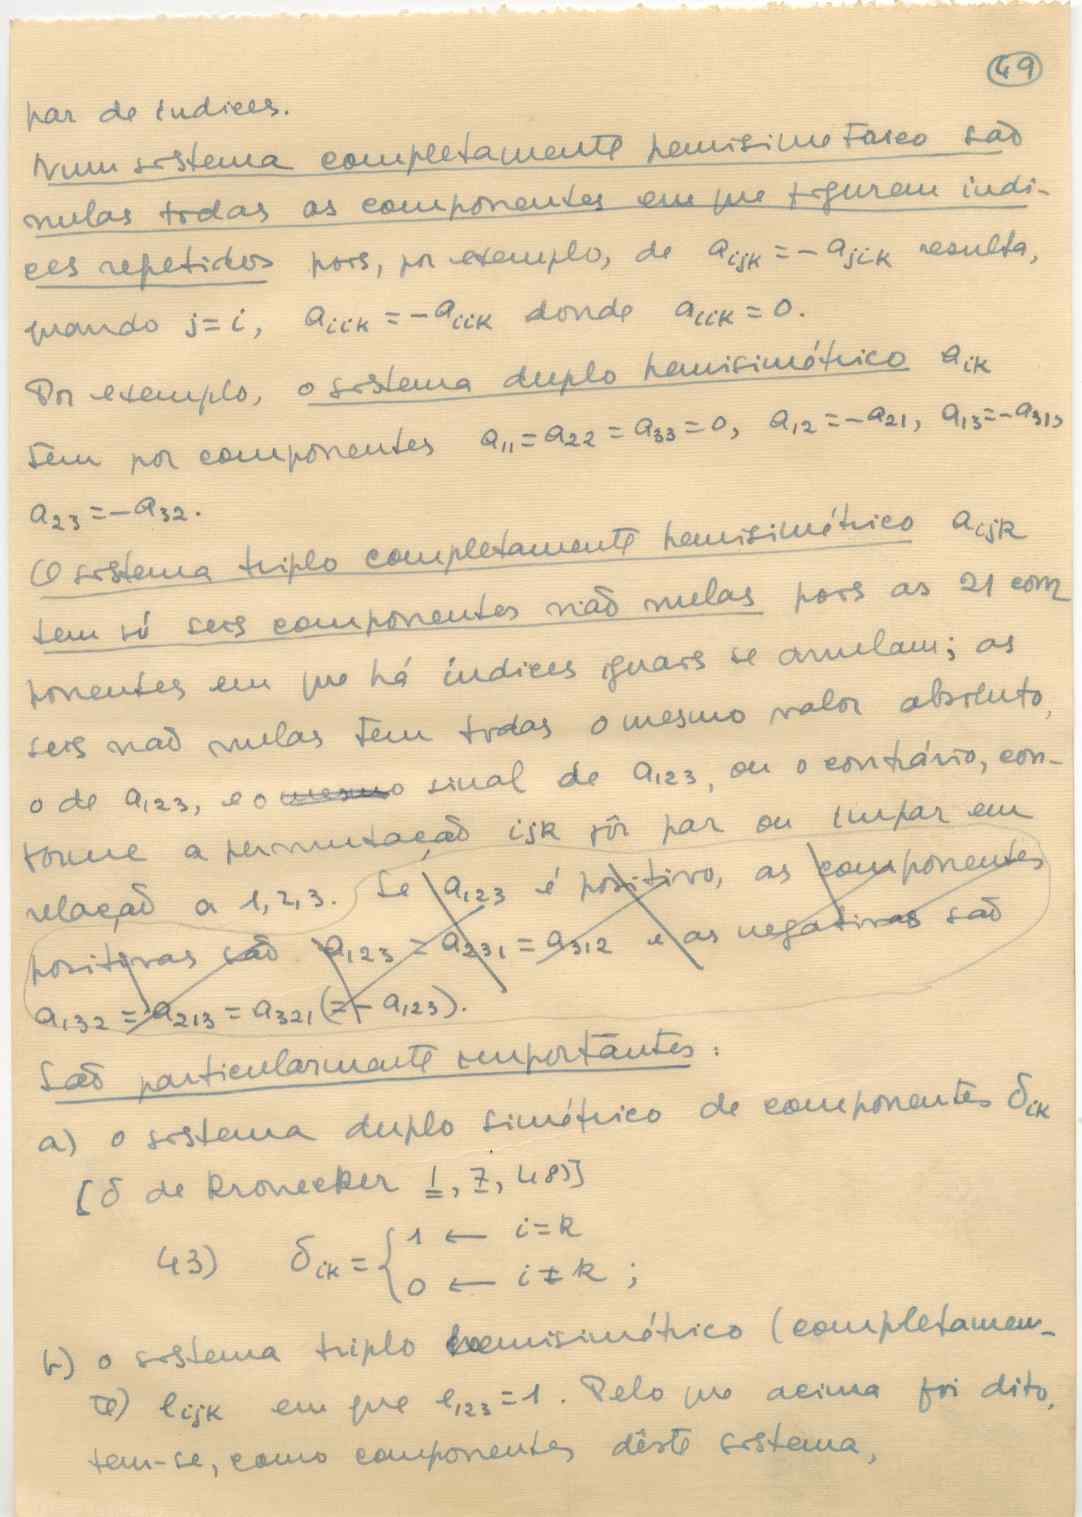 49
par de índices.
Num sistema completamente hemisimétrico são
nulas todas as componentes em que figurem índi-
ces repetidos pois, por exemplo, de a_ijk = -a_jik resulta,
quando j=i, a_iik = -a_iik donde a_iik = 0.
Por exemplo, o sistema duplo hemisimétrico a_ik
tem por componentes a_11 = a_22 = a_33 = 0, a_12 = -a_21, a_13 = -a_31,
a_23 = -a_32.
O sistema triplo completamente hemisimétrico a_ijk
tem só seis componentes não nulas pois as 21 com
ponentes em que há índices iguais se anulam; as
seis não nulas têm todas o mesmo valor absoluto,
o de a_123, e o mesmo sinal de a_123, ou o contrário, con-
forme a permutação ijk fôr par ou ímpar em
relação a 1,2,3. Se a_123 é positivo, as componentes
positivas são a_123 = a_231 = a_312 e as negativas são
a_132 = a_213 = a_321 (= -a_123).
São particularmente importantes:
a) o sistema duplo simétrico de componentes δ_ik
[δ de Kronecker 1, 7, 48)]
43) δ_ik = { 1 ← i=k
0 ← i≠k ;
b) o sistema triplo hemisimétrico (completamen-
te) e_ijk em que e_123 = 1. Pelo que acima foi dito,
tem-se, como componentes dêste sistema,